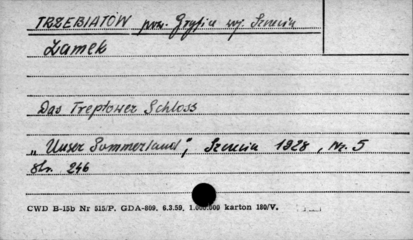 TRZEBIATÓW pow. Gryfin woj. Szczecin
Zamek
Das Treptower Schloss
„Unser Pommerland", Szczecin 1928, Nr. 5
Str. 246
CWD B-15b Nr 515/P. GDA-809. 6.3.59, 1.000.000 karton 180/V.